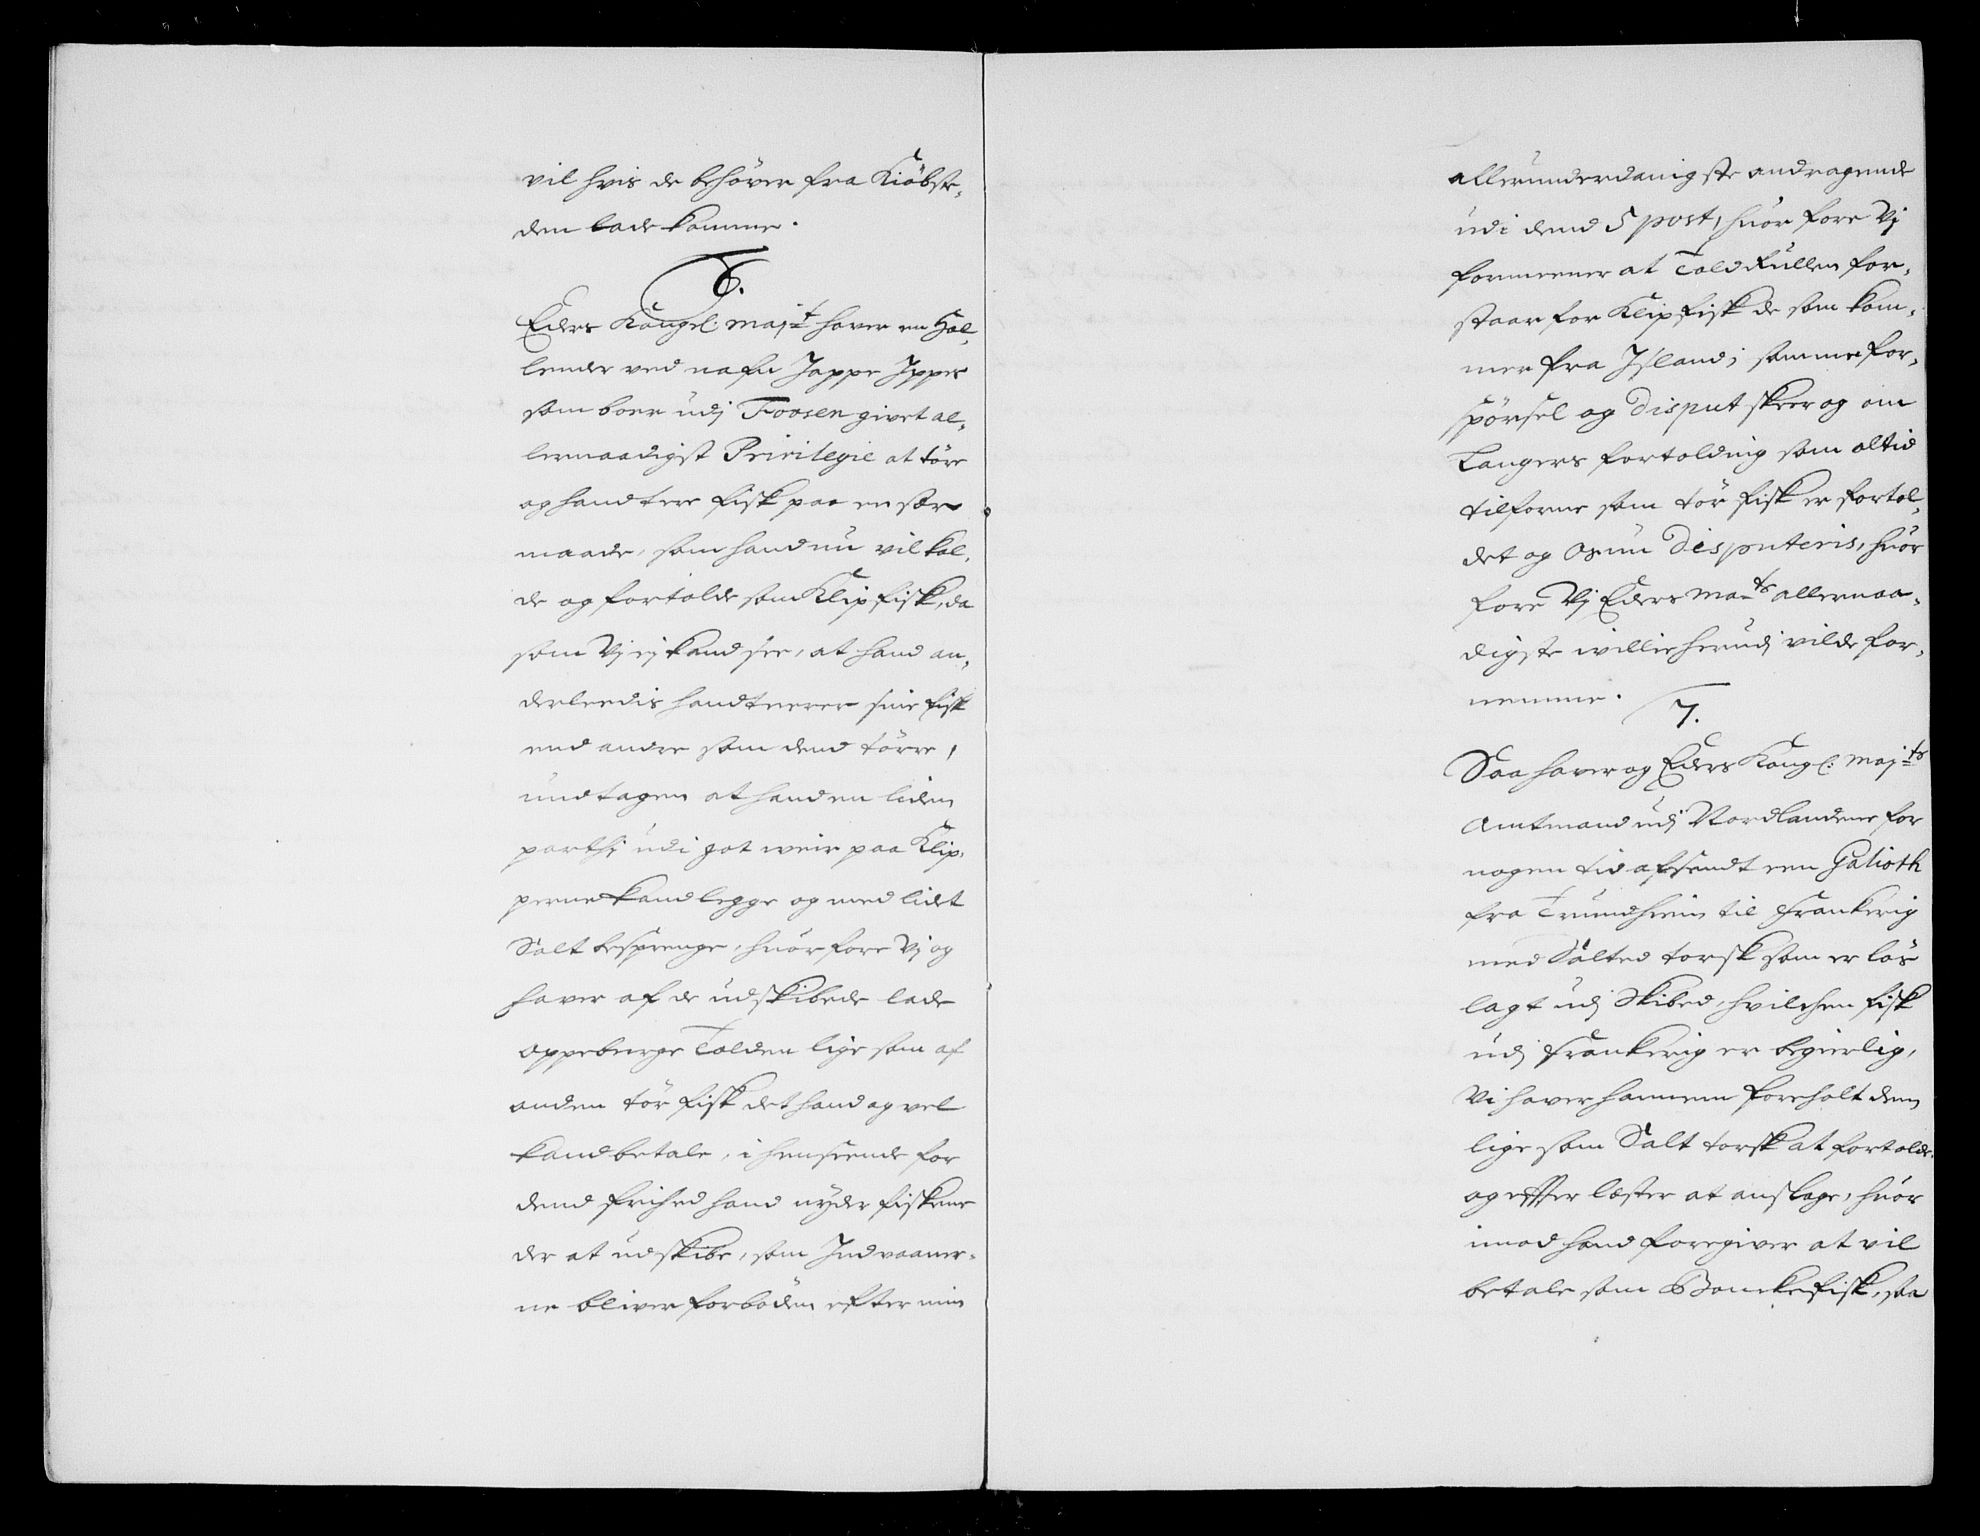 vil hvis de behøver fra Kiöbste,
den lade komme.
6.
Eders Kongel: maj:t haver en Hol,
lender ved nafn Jappe Ippes
som boer udj Foosen givet al,
lernaadigst Privilegie at töre
og handtere fisk paa en sær
maade, som hand nu vil kal,
de og fortolde som Klipfisk, da
som Vj ej kand see, at hand an,
derleedis handteerer sine fisk
end andre som dend törre,
undtagen at hand en liden
parthj udi got weir paa Klip,
perne kand legge og med lidet
Salt besprenge, huorfore Vj og
haver af de udskibede lade
oppeberge Tolden lige som af
anden tör fisk det hand og vel
kand betale, i henseende for
dend frihed hand nyder fiskene
der at udskibe, som Indvaaner,
ne bliver forböden efter min
allerunderdanigste andragende
udi dend 5 post, huor fore Vj
formeener at Told Rullen for,
staar for Klipfisk de som kom,
mer fra Island; samme for,
spörsel og disput skeer og om
Langers fortolding som altid
tilforne som tör fisk er fortol,
det og nu disputeris, huor
fore Vj Eders Ma:ts allernaa,
digste willie herudj vilde for,
nemme.
7.
Saa haver og Eders Kongl: Maj:ts
Amtmand udj Nordlandene for
nogen tid afsendt een Galioth
fra Trundhiem til Frankerig
med Salted torsk som er lös
lagt udj Skibed, hvilchen fisk
udj Frankerig er begierlig,
Vi haver hannem foreholt dem
lige som Salt torsk at fortolde,
og effter læster at anslage, huor
imod hand foregiver at vil
betale som Bonckefisk, saa